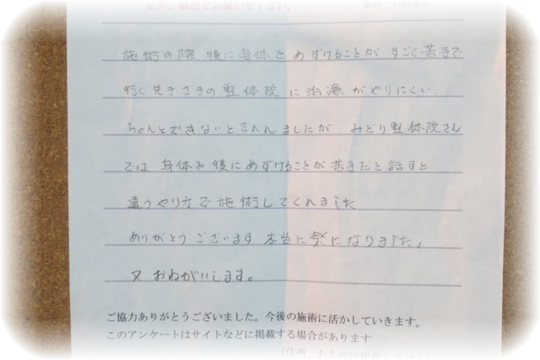 施術の際 後に身体をあずけることが すごく苦手で
行く先きざきの整体院に治療がやりにくい、
ちゃんとできないと言われましたが みどり整体院さん
では 身体を後にあずけることが苦手だと話すと
違うやり方で施術してくれました
ありがとうございます 本当に楽になりました。
又おねがいします。
ご協力ありがとうございました。今後の施術に活かしていきます。
このアンケートはサイトなどに掲載する場合があります